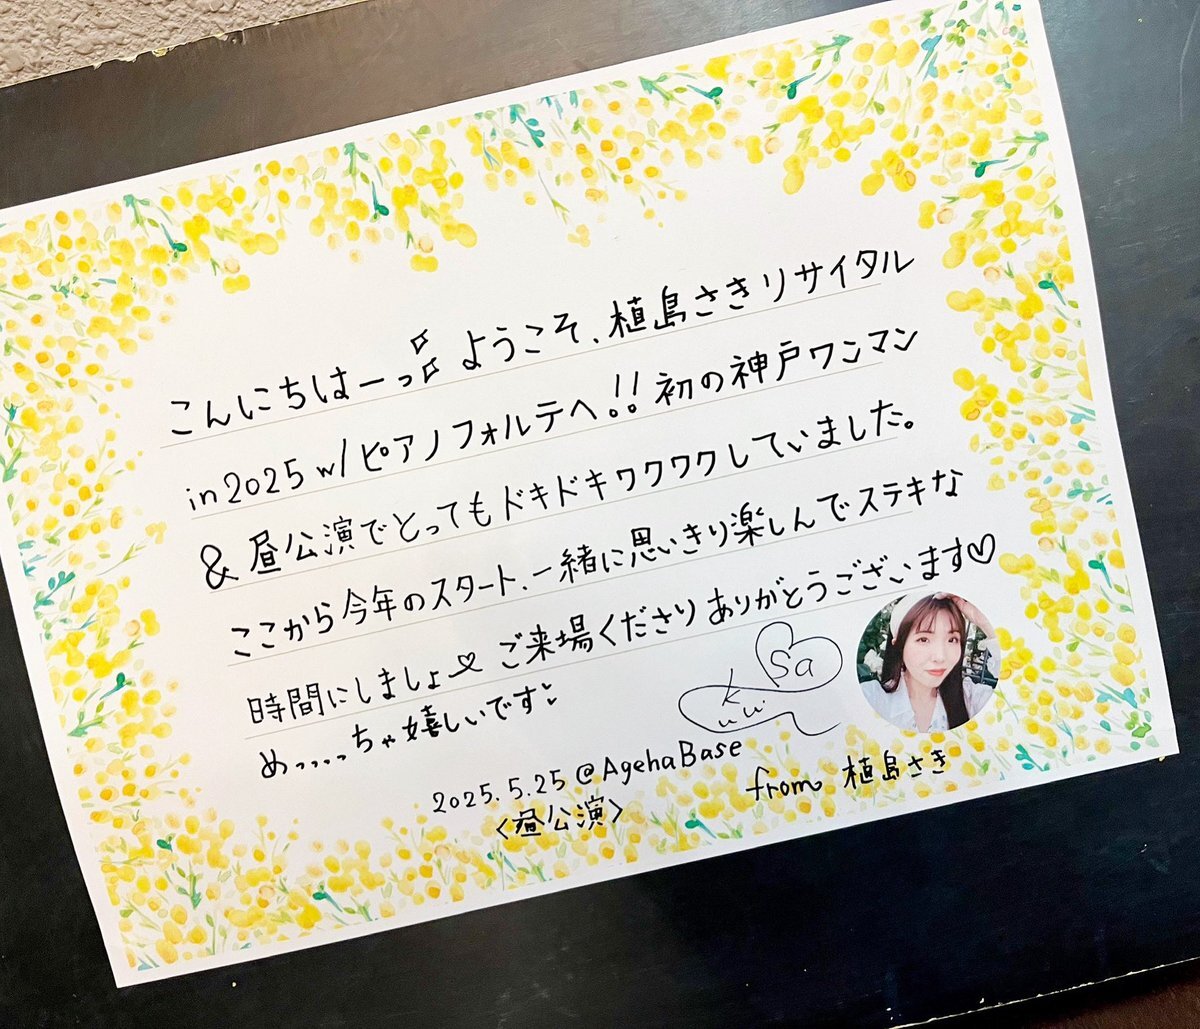 こんにちはーっ ようこそ、植島さきリサイタル
in 2025 w/ピアノフォルテへ!! 初の神戸ワンマン
& 昼公演でとってもドキドキワクワクしていました。
ここから今年のスタート、一緒に思いきり楽しんでステキな
時間にしましょ♡ ご来場くださりありがとうございます♡
めっっっっちゃ嬉しいです
Sa
k
2025.5.25 @AgehaBase
〈昼公演〉
from 植島さき